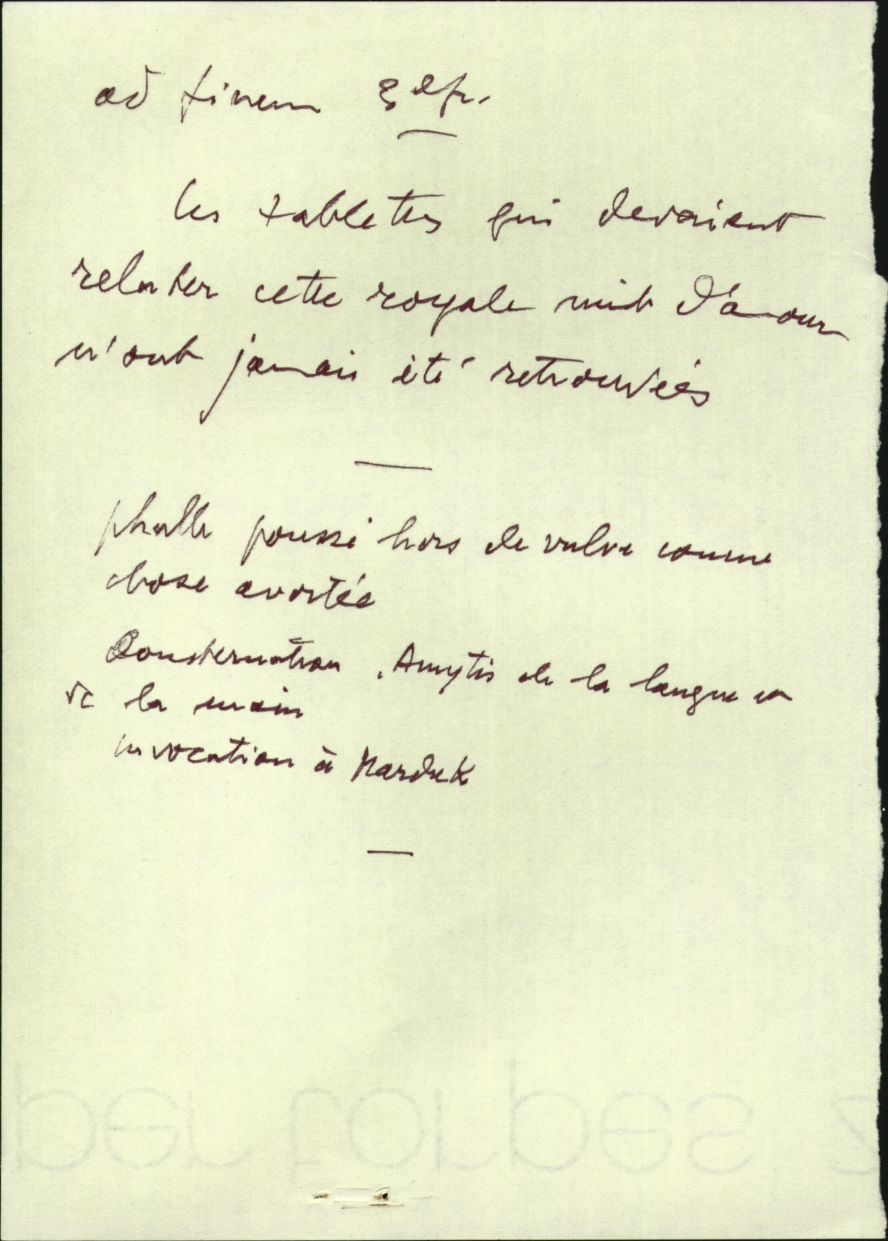 ad finem 3e fr.
les tablettes qui devaient
relater cette royale nuit d'amour
n'ont jamais été retrouvées
phalle poussé hors de vulve comme
chose avortée
Consternation. Amytis de la langue et
de la main
invocation à Marduk